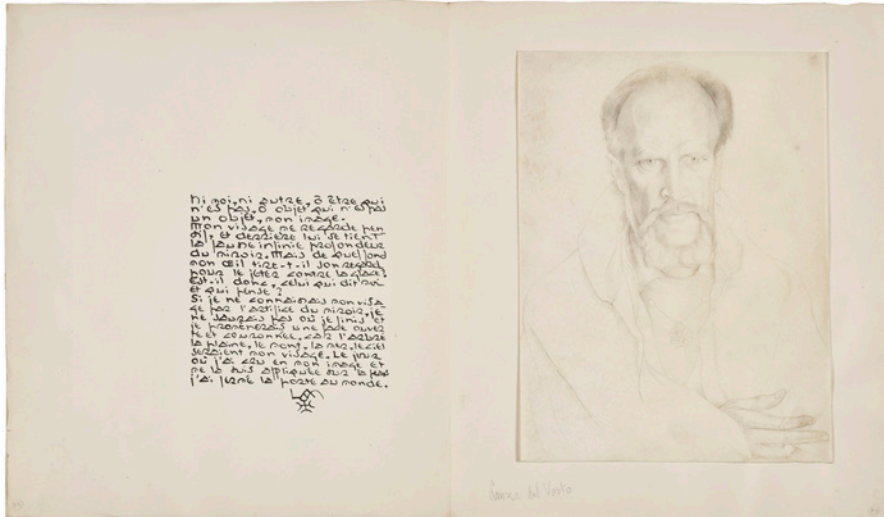 Ni moi, ni autre, ô être qui
n'es pas, ô objet qui n'es pas
un objet, mon image.
Mon visage me regarde pen
dil, et derrière lui se tient
la jaune infinie profondeur
du miroir. Mais de quel fond
mon œil tire-t-il son regard
pour le jeter contre la glace?
Est-il donc, celui qui dit moi
et qui pense?
Si je ne connaissais mon visa
ge par l'artifice du miroir, je
ne saurais pas où je finis et
je promènerais une face ouver
te et couronnée, car l'arbre
la plaine, le mont, la mer, le ciel
seraient mon visage. Le jour
où j'ai cru en mon image et
me la suis appliquée sur la peau
j'ai fermé la porte au monde.
Lanza del Vasto